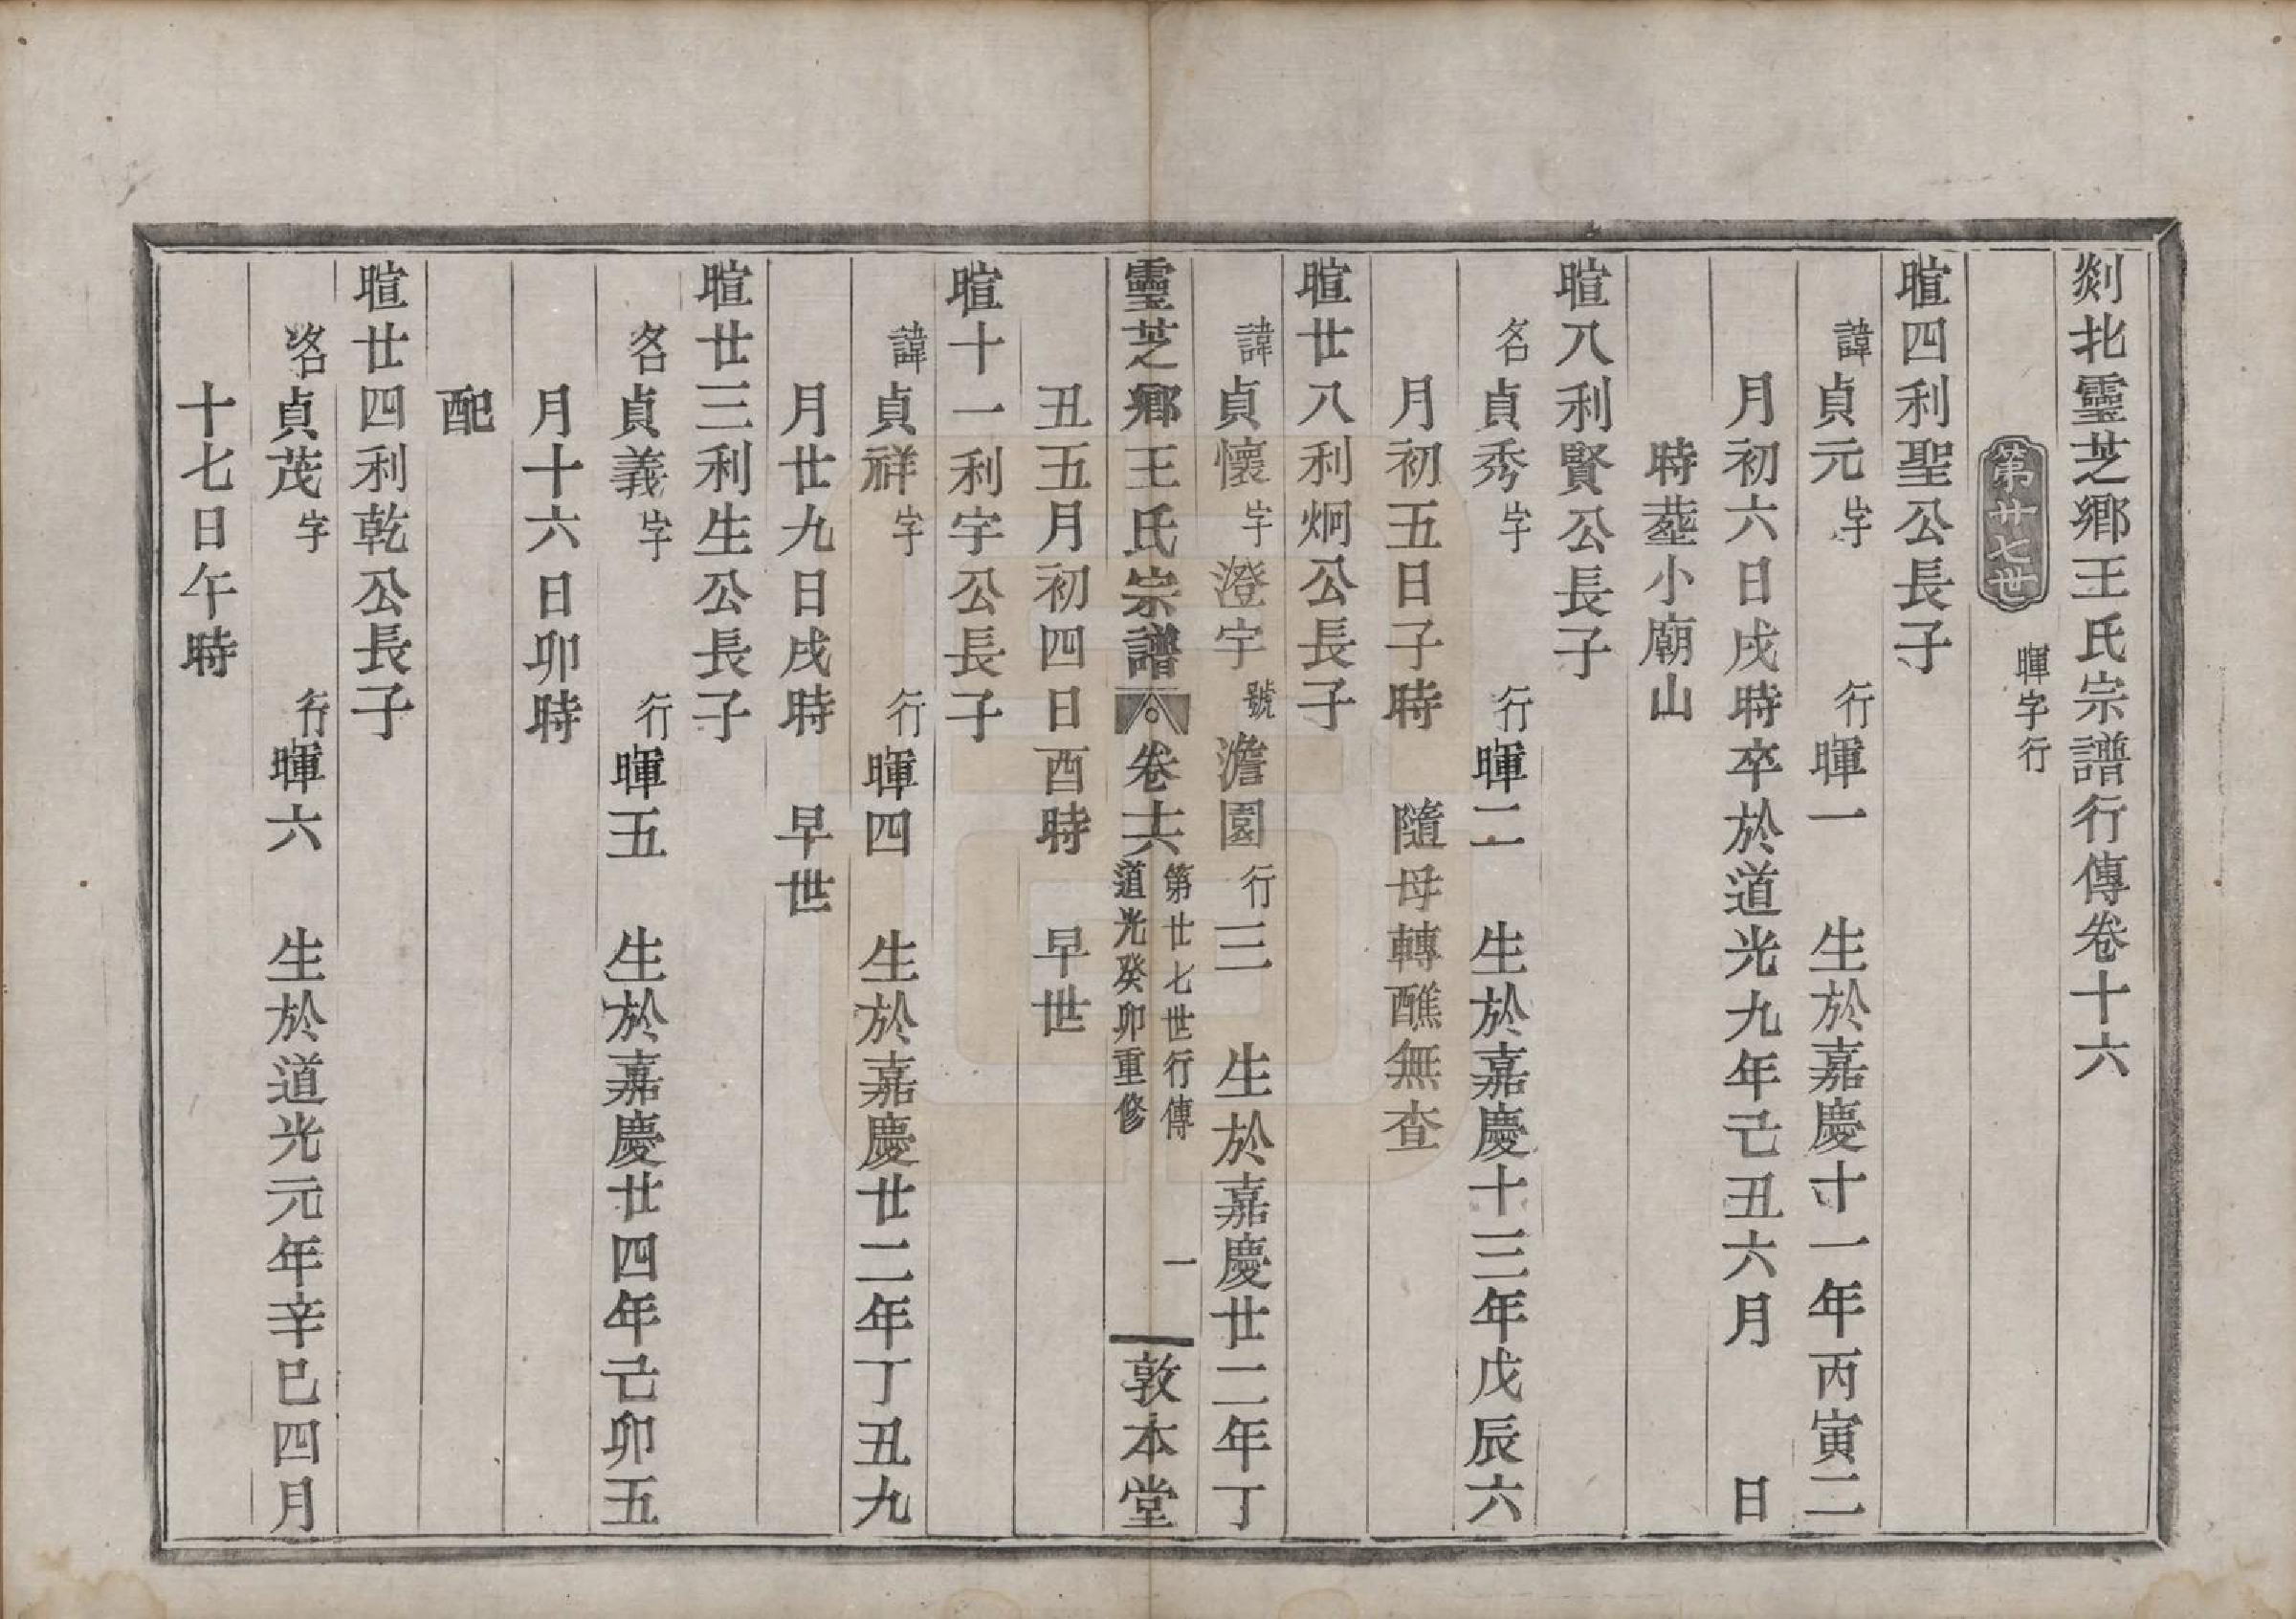 剡北靈芝鄉王氏宗譜行傳卷十六
第廿七世 暉字行
暄四利聖公長子
諱貞元字 行暉一 生於嘉慶十一年丙寅二
月初六日戌時卒於道光九年己丑六月 日
時塟小廟山
暄八利賢公長子
名貞秀字 行暉二 生於嘉慶十三年戊辰六
月初五日子時 隨母轉醮無查
暄廿八利炯公長子
諱貞懷字澄宇號澹園行三 生於嘉慶廿二年丁
靈芝鄉王氏宗譜 卷十六 第廿七世行傳 道光癸卯重修 一 敦本堂
丑五月初四日酉時 早世
暄十一利字公長子
諱貞祥字 行暉四 生於嘉慶廿二年丁丑九
月廿九日戌時 早世
暄廿三利生公長子
名貞義字 行暉五 生於嘉慶廿四年己卯五
月十六日卯時
配
暄廿四利乾公長子
名貞茂字 行暉六 生於道光元年辛巳四月
十七日午時